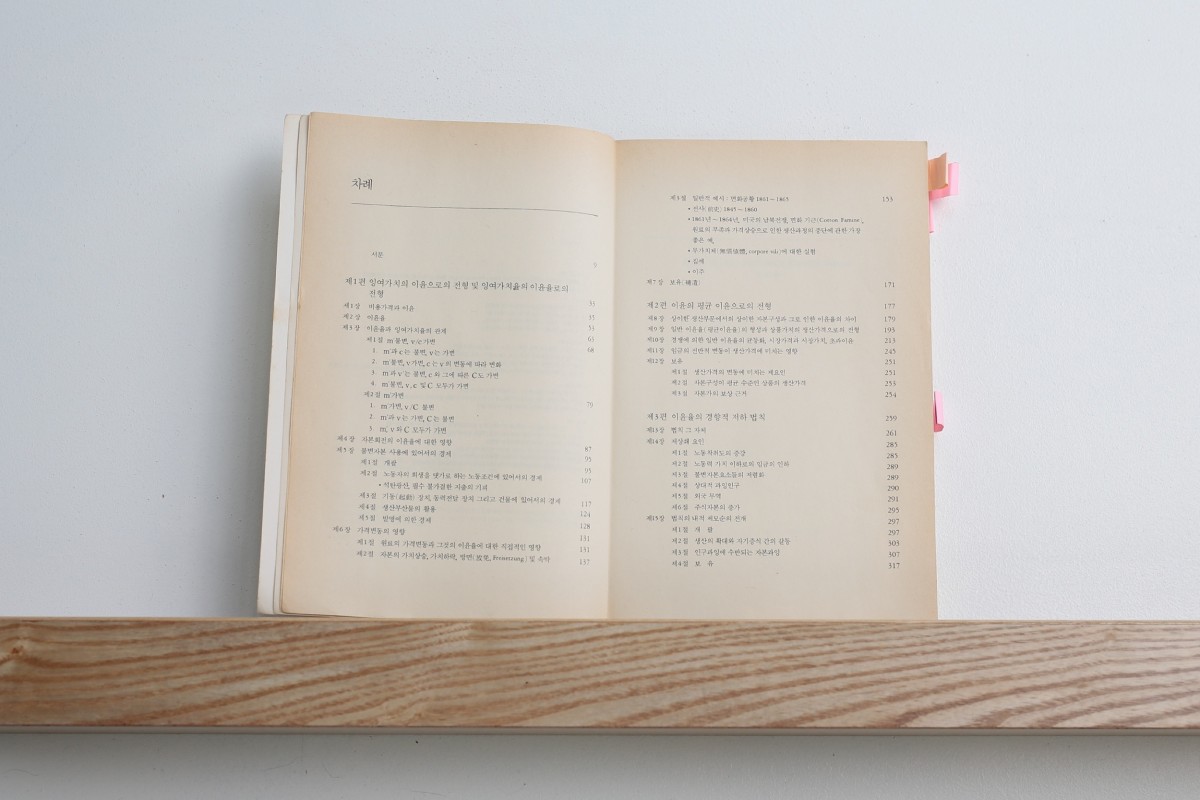 차례
서문
9
제1편 잉여가치의 이윤으로의 전형 및 잉여가치율의 이윤율로의
전형
제1장 비용가격과 이윤 33
제2장 이윤율 35
제3장 이윤율과 잉여가치율의 관계 51
제1절 m'불변, v/c가변 61
1. m'과 c는 불변, v는 가변 68
2. m'불변, v가변, c는 v의 변동에 따라 변화
3. m'과 v는 불변, c와 그에 따른 C도 가변
4. m'불변, v, c 및 C 모두가 가변
제2절 m'가변
1. m'가변, v/C 불변 79
2. m'과 v는 가변, C는 불변
3. m', v와 C 모두가 가변
제4장 자본회전의 이윤율에 대한 영향
제5장 불변자본 사용에 있어서의 경제 87
제1절 개괄 95
제2절 노동자의 희생을 댓가로 하는 노동조건에 있어서의 경제 95
• 석탄광산, 필수 불가결한 지출의 기피 107
제3절 기동(起動) 장치, 동력전달 장치 그리고 건물에 있어서의 경제
제4절 생산부산물의 활용 117
제5절 발명에 의한 경제 124
제6장 가격변동의 영향 128
제1절 원료의 가격변동과 그것의 이윤율에 대한 직접적인 영향 131
제2절 자본의 가치상승, 가치하락, 방면(放免, Freisetzung) 및 속박 131
137
제3절 일반적 예시: 면화공황 1861~1865 153
• 전사(前史) 1845~1860
• 1861년~1864년, 미국의 남북전쟁, 면화 기근(Cotton Famine),
원료의 부족과 가격상승으로 인한 생산과정의 중단에 관한 가장
좋은 예,
• 무가치체(corpore vili)에 대한 실험
• 집세
• 이주
제7장 보유(補遺) 171
제2편 이윤의 평균 이윤으로의 전형 177
제8장 상이한 생산부문에서의 상이한 자본구성과 그로 인한 이윤율의 차이 179
제9장 일반 이윤율(평균이윤율)의 형성과 상품가치의 생산가격으로의 전형 193
제10장 경쟁에 의한 일반 이윤율의 균등화, 시장가격과 시장가치, 초과이윤 213
제11장 임금의 전반적 변동이 생산가격에 미치는 영향 245
제12장 보유 251
제1절 생산가격의 변동에 미치는 제요인 251
제2절 자본구성이 평균 수준인 상품의 생산가격 253
제3절 자본가의 보상 근거 254
제3편 이윤율의 경향적 저하 법칙 259
제13장 법칙 그 자체 261
제14장 제상쇄 요인 285
제1절 노동착취도의 증강 285
제2절 노동력 가치 이하로의 임금의 인하 289
제3절 불변자본요소들의 저렴화 289
제4절 상대적 과잉인구 290
제5절 외국 무역 291
제6절 주식자본의 증가 295
제15장 법칙의 내적 제모순의 전개 297
제1절 개 괄 297
제2절 생산의 확대와 가치증식 간의 갈등 303
제3절 인구과잉에 수반되는 자본과잉 307
제4절 보 유 317